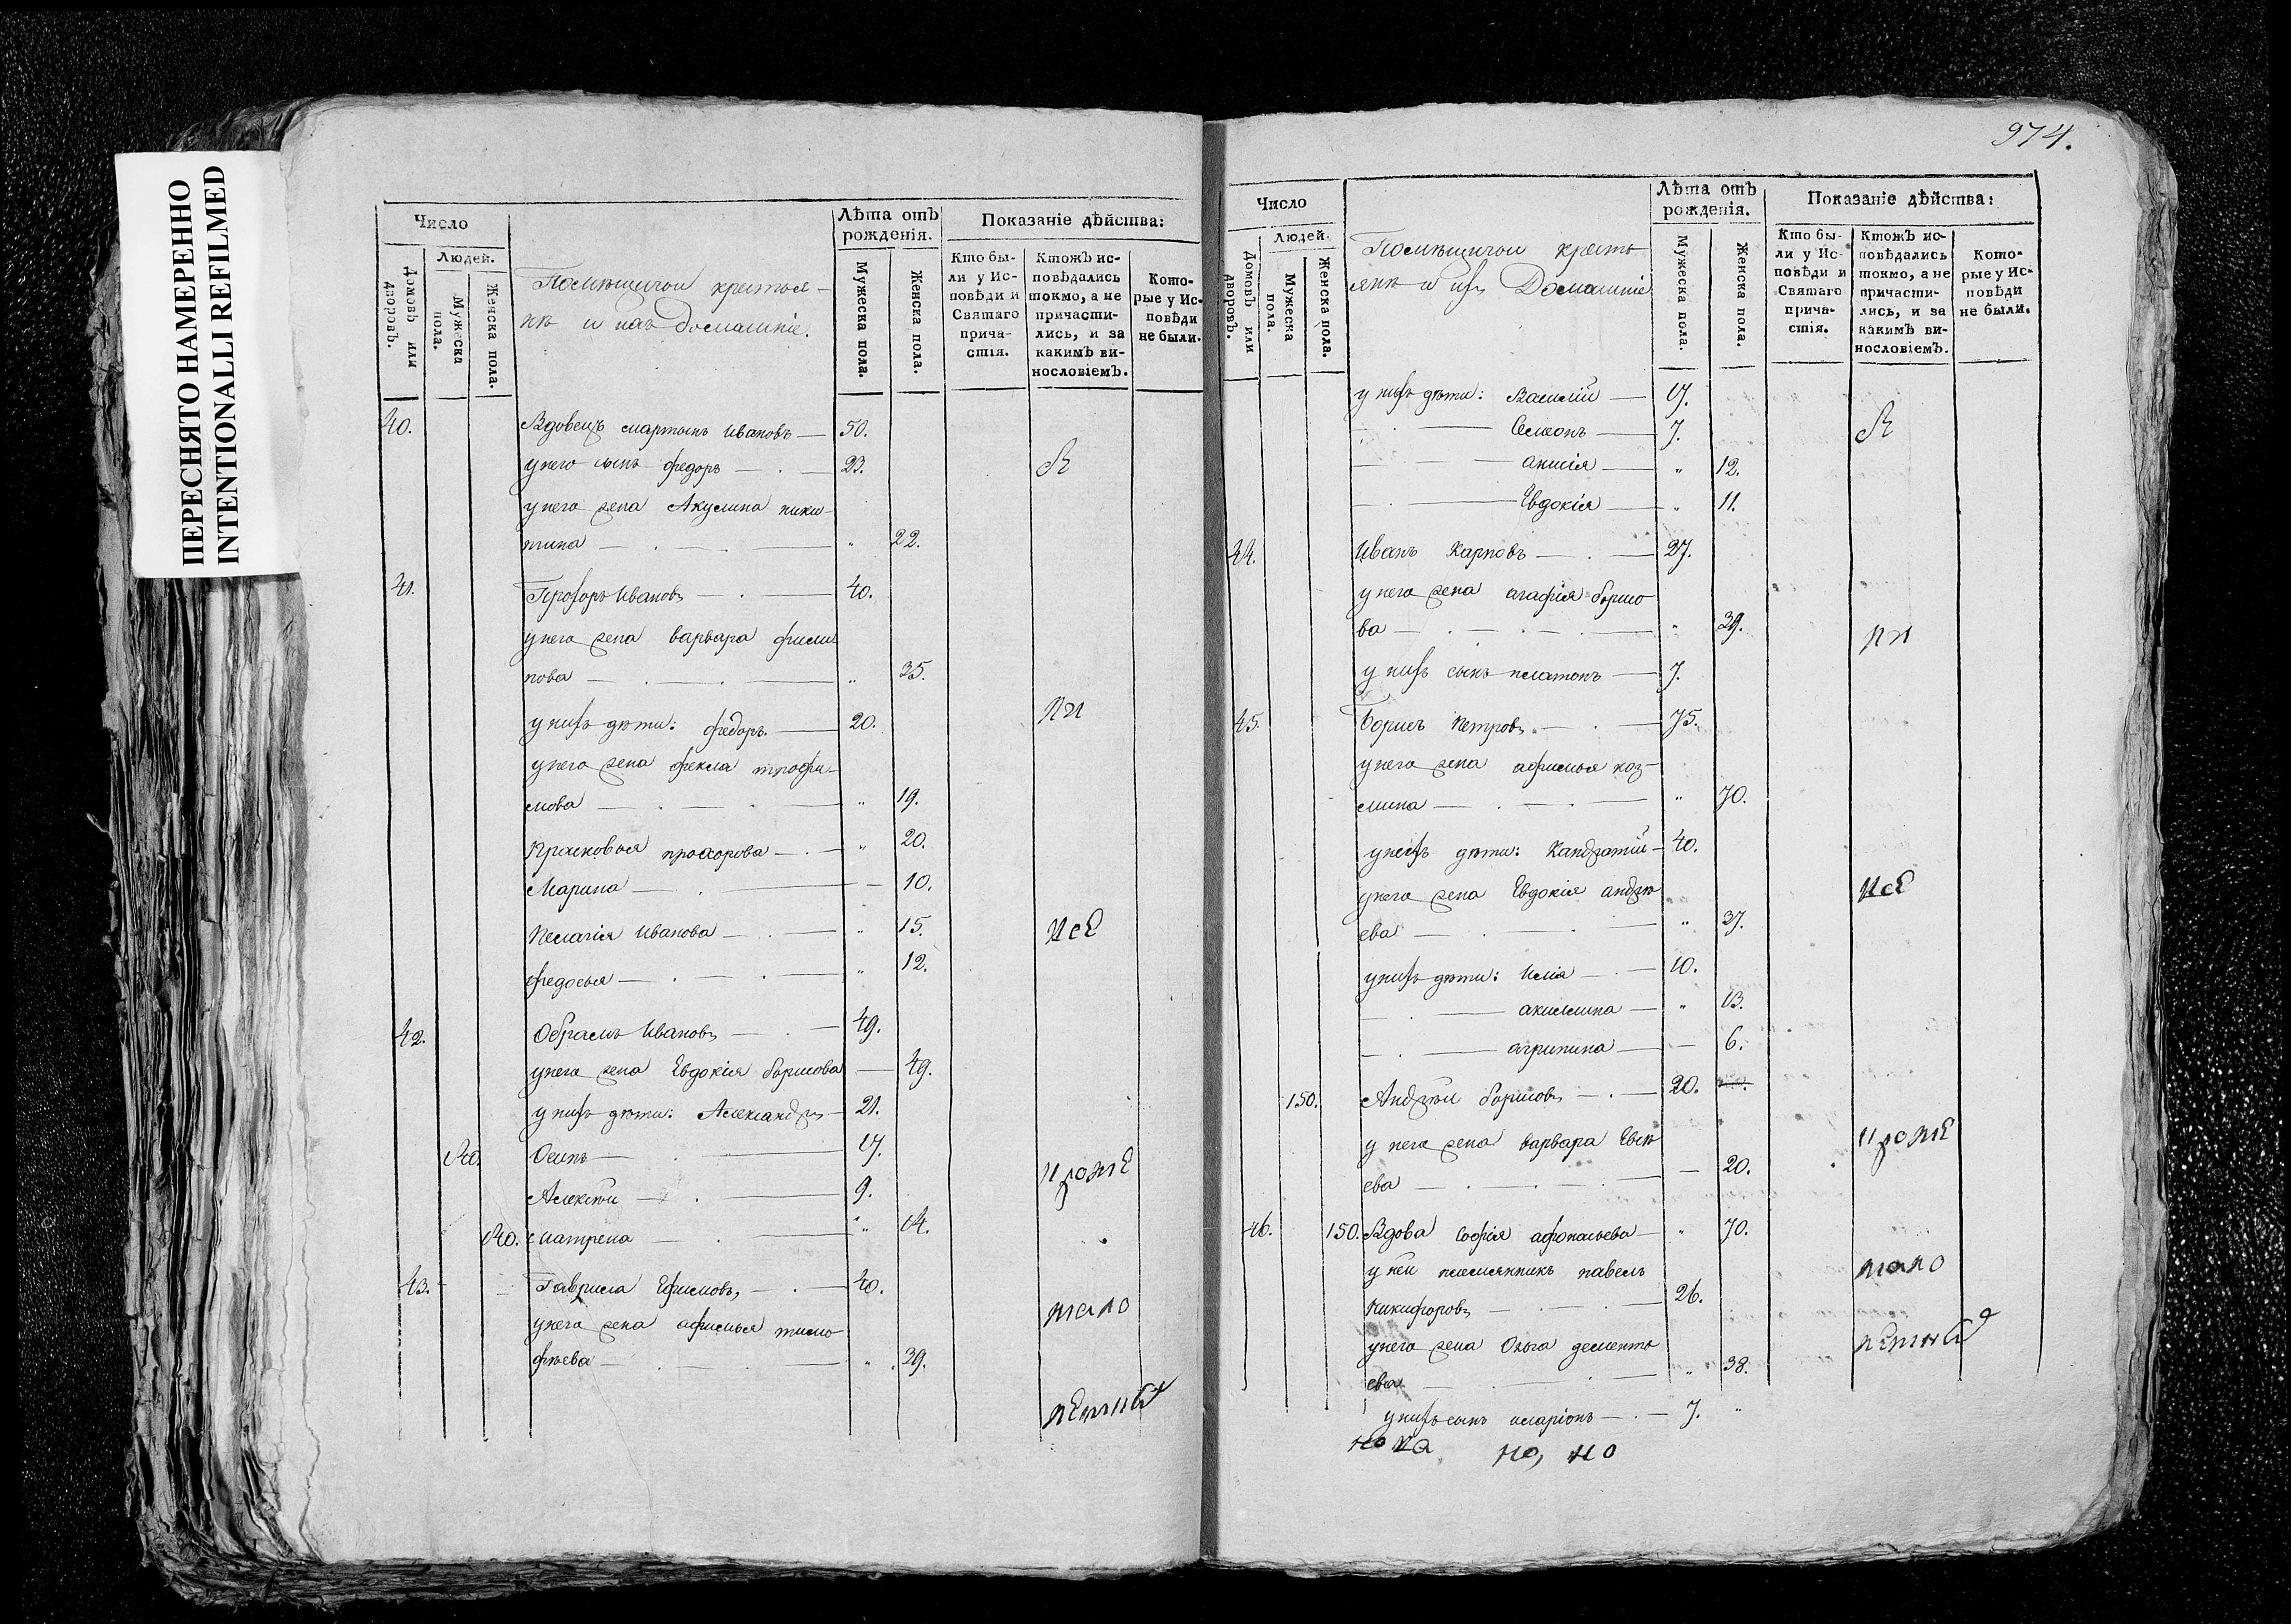 ПЕРЕСНЯТО НАМЕРЕННО
INTENTIONALLI REFILMED
Число
Людей.
Домовъ или дворовъ.
Мужеска пола.
Женска пола.
Помѣщичьи крестья-
нѣ и ихъ домашніе.
Лѣта отъ рожденія.
Мужеска пола.
Женска пола.
Показаніе дѣйства:
Кто бы-
ли у Ис-
повѣди и
Святаго
прича-
стія.
Ктожъ ис-
повѣдались
токмо, а не
причасти-
лись, и за
какимъ ви-
нословіемъ.
Кото-
рые у Ис-
повѣди
не были.
40. Вдовецъ мартынъ Ивановъ 50.
унего сынъ федоръ 23.
унего жена Акулина ники-
тина " 22.
41. Прохоръ Ивановъ 40.
унего жена варвара фили
пова " 35.
у нихъ дѣти: федоръ 20.
унего жена фекла трофи-
мова " 19.
Прасковья прохорова " 20.
Марина 10.
Пелагія Иванова " 15.
федосья " 12.
42. Обрамъ Ивановъ 49.
унего жена Евдокія борисова 49.
у нихъ дѣти: Александръ 21.
140. Осипъ 17.
Алексѣй 9.
140. матрена " 14.
43. Гаврила Ефимовъ, 40.
унего жена афимья тимо
фѣева " 39.
974.
Число
Людей.
Домовъ или дворовъ.
Мужеска пола.
Женска пола.
Помѣщичьи кресть
янѣ и ихъ Домашніе
Лѣта отъ
рожденія.
Мужеска пола.
Женска пола.
Показаніе дѣйства:
Кто бы-
ли у Ис-
повѣди и
Святаго
прича-
стія.
Ктожъ ис-
повѣдались
токмо, а не
причасти-
лись, и за
какимъ ви-
нословіемъ.
Кото-
рые у Ис-
повѣди
не были.
у нихъ дѣти: Василій 17.
Семіонъ 7.
" 12.
Евдокія " 11.
44. Иванъ Карповъ 27.
у него жена агафія борисо
ва " 39.
у нихъ сынъ платонъ 7.
45. Борисъ Петровъ 75.
унего жена афимья коз-
мина " 70.
унихъ дѣти: Кандратій 40.
унего жена Евдокія андрѣ
ева " 37.
унихъ дѣти: Илія 10.
акилина " 13.
агрипина 6.
150. Андрѣй борисовъ 20.
у него жена варвара Евсѣ
ева 20.
46. 150. Вдова Софія афонасьева " 70.
у ней племянникъ павелъ
Никифоровъ 26.
унего жена Ольга дементь
ева " 38.
унихъ сынъ иларіонъ 7. "